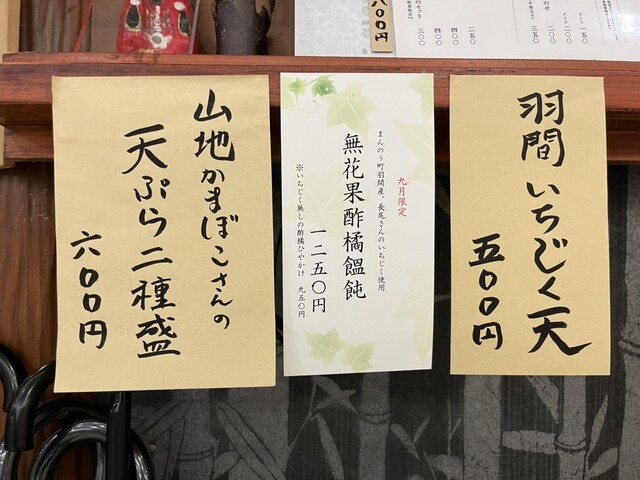 羽間いちじく天
五〇〇円
九月限定
まんのう町羽間産、長尾さんのいちじく使用
無花果酢橘饂飩
一二五〇円
※いちじく無しの酢橘ひやかけ 九五〇円
山地かまぼこさんの
天ぷら二種盛
六〇〇円
八〇〇円